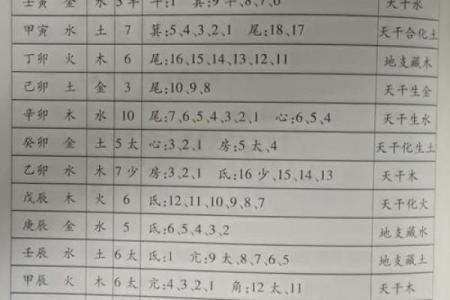 壬寅 金 水 5 半 箕:1 箕:9 半、8、7、6 天干水
甲寅 水 土 7 箕:5、4、3、2、1 尾:18、17 天干合化土
丁卯 火 木 6 尾:16、15、14、13、12、11 地支藏木
己卯 土 金 3 尾:10、9、8 天干生金
辛卯 木 水 10 尾:7、6、5、4、3、2、1 心:6、5、4 天干生水
癸卯 金 土 5 太 心:3、2、1 房:5 太、4 天干化生土
乙卯 水 木 7 少 房:3、2、1 氐:16 少、15、14、13 天干木
戊辰 木 火 6 氐:12、11、10、9、8、7 天干化火
庚辰 金 水 5 氐:6、5、4、3、2 地支藏水
壬辰 水 土 6 太 氐:1 亢:9 太、8、7、6、5 地支藏土
甲辰 火 木 6 太 亢:4、3、2、1 角:12 太、11 天干木